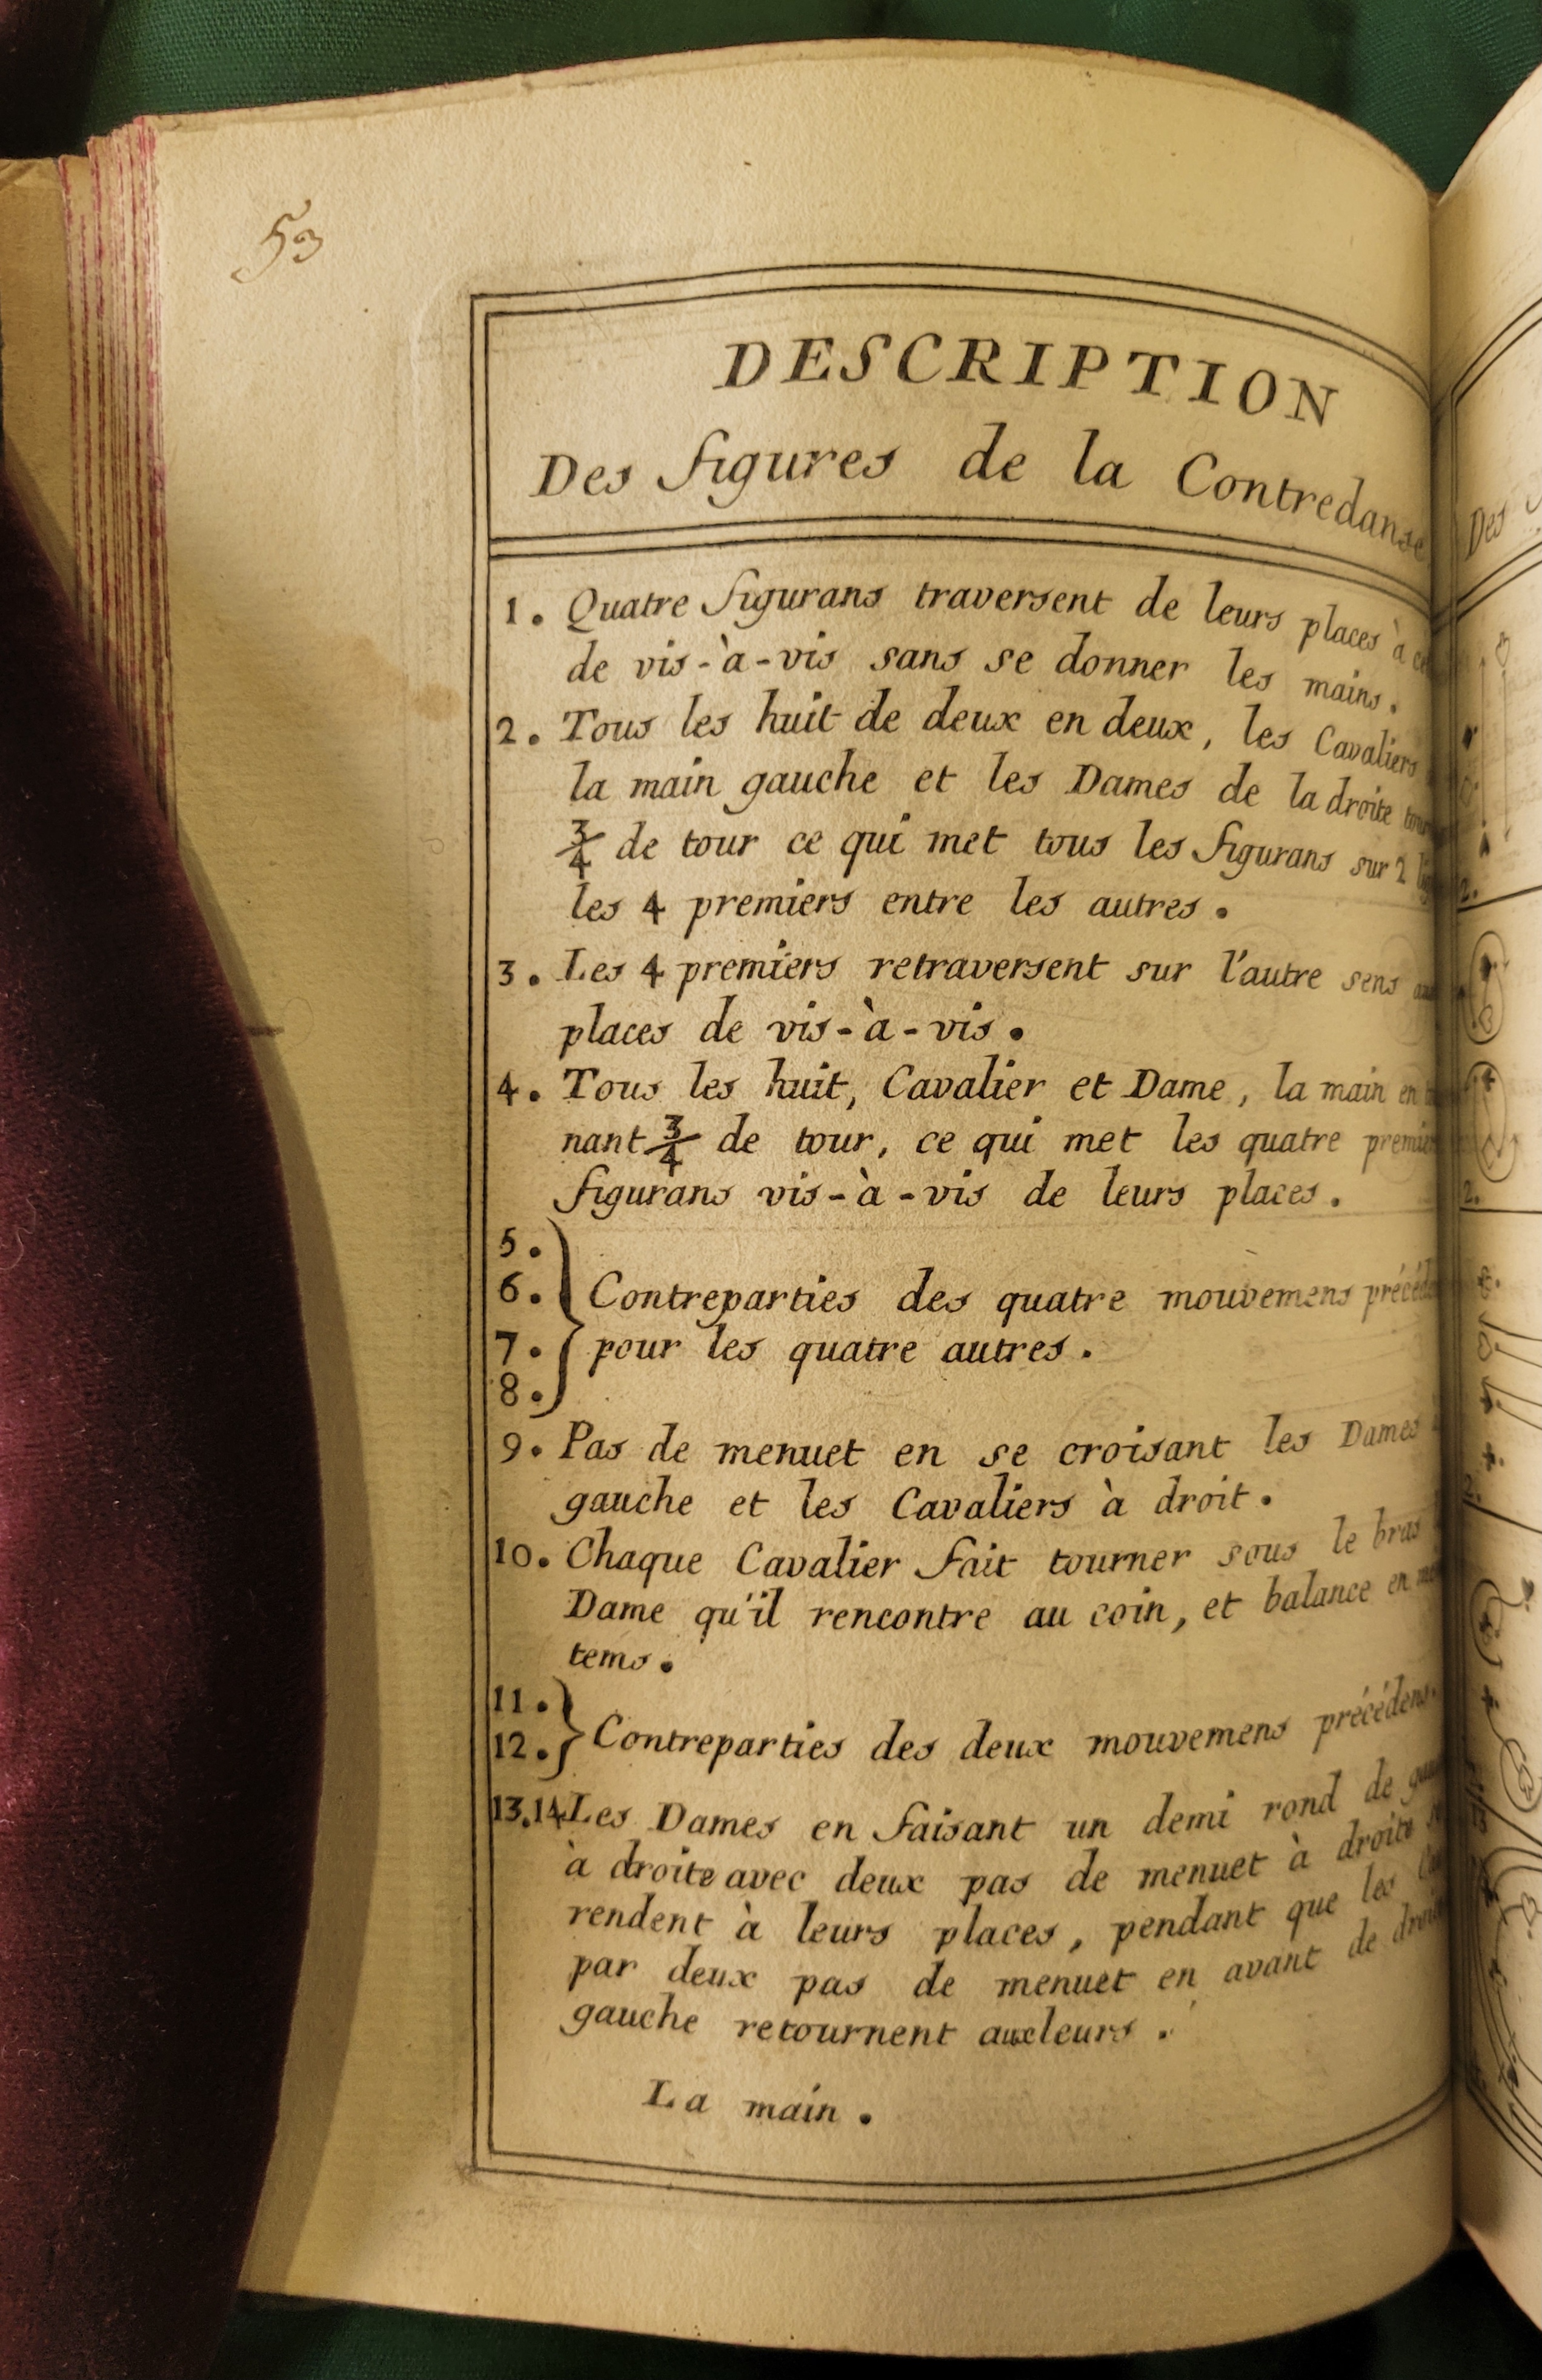 53
DESCRIPTION
Des figures de la Contredanse
1. Quatre figurans traversent de leurs places à
de vis-à-vis sans se donner les mains.
2. Tous les huit de deux en deux, les Cavaliers
la main gauche et les Dames de la droite
3/4 de tour ce qui met tous les figurans sur 2
les 4 premiers entre les autres.
3. Les 4 premiers retraversent sur l'autre sens
places de vis-à-vis.
4. Tous les huit, Cavalier et Dame, la main en
nant 3/4 de tour, ce qui met les quatre
figurans vis-à-vis de leurs places.
5.
6. Contreparties des quatre mouvemens
7. pour les quatre autres.
8.
9. Pas de menuet en se croisant les Dames
gauche et les Cavaliers à droit.
10. Chaque Cavalier fait tourner sous le bras
Dame qu'il rencontre au coin, et balance en
tems.
11.
12. Contreparties des deux mouvemens précédens.
13.14 Les Dames en faisant un demi rond de
à droite avec deux pas de menuet à droite
rendent à leurs places, pendant que les
par deux pas de menuet en avant de
gauche retournent aux leurs.
La main.
Des
2.
2.